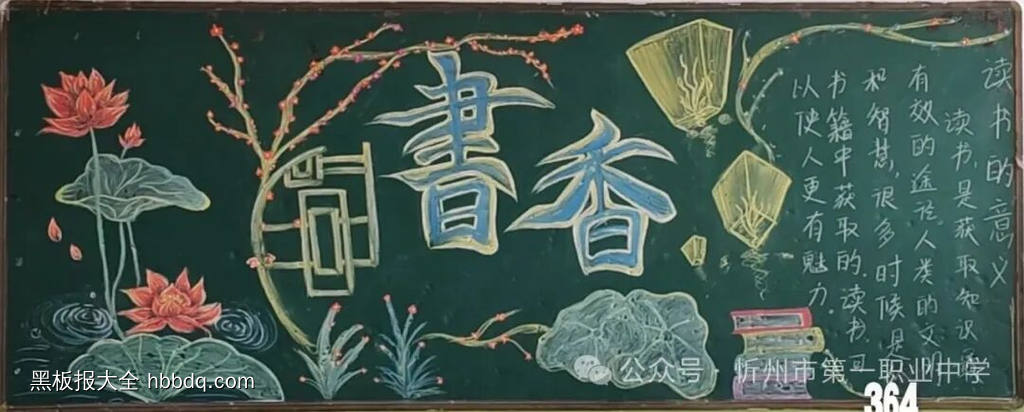 書香
读书的意义
读书,是获取知识
有效的途径,人类的文明
和智慧,很多时候是
书籍中获取的.读书可
以使人更有魅力.
黑板报大全 hbbdq.com
公众号·忻州市第一职业中学
364